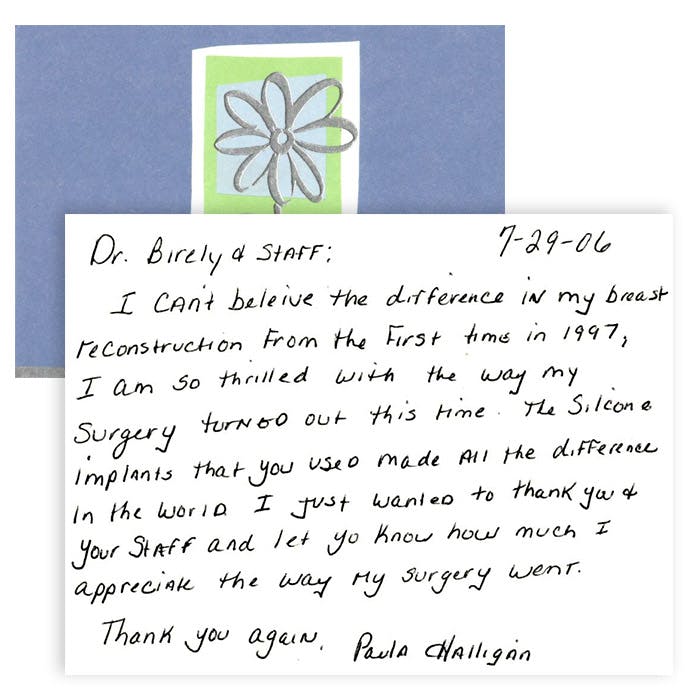 Dr. Birely & STAFF; 7-29-06
I CAN't beleive the difference iN my breast
reconstruction From the First time in 1997,
I am so thrilled with the way my
Surgery turNeD out this time. The Silcone
implants that you useD made All the difference
In the WorlD I just wanteD to thank you &
your StAFF and let yo Know how much I
appreciate the way My surgery went.
Thank you again. Paula Halligan